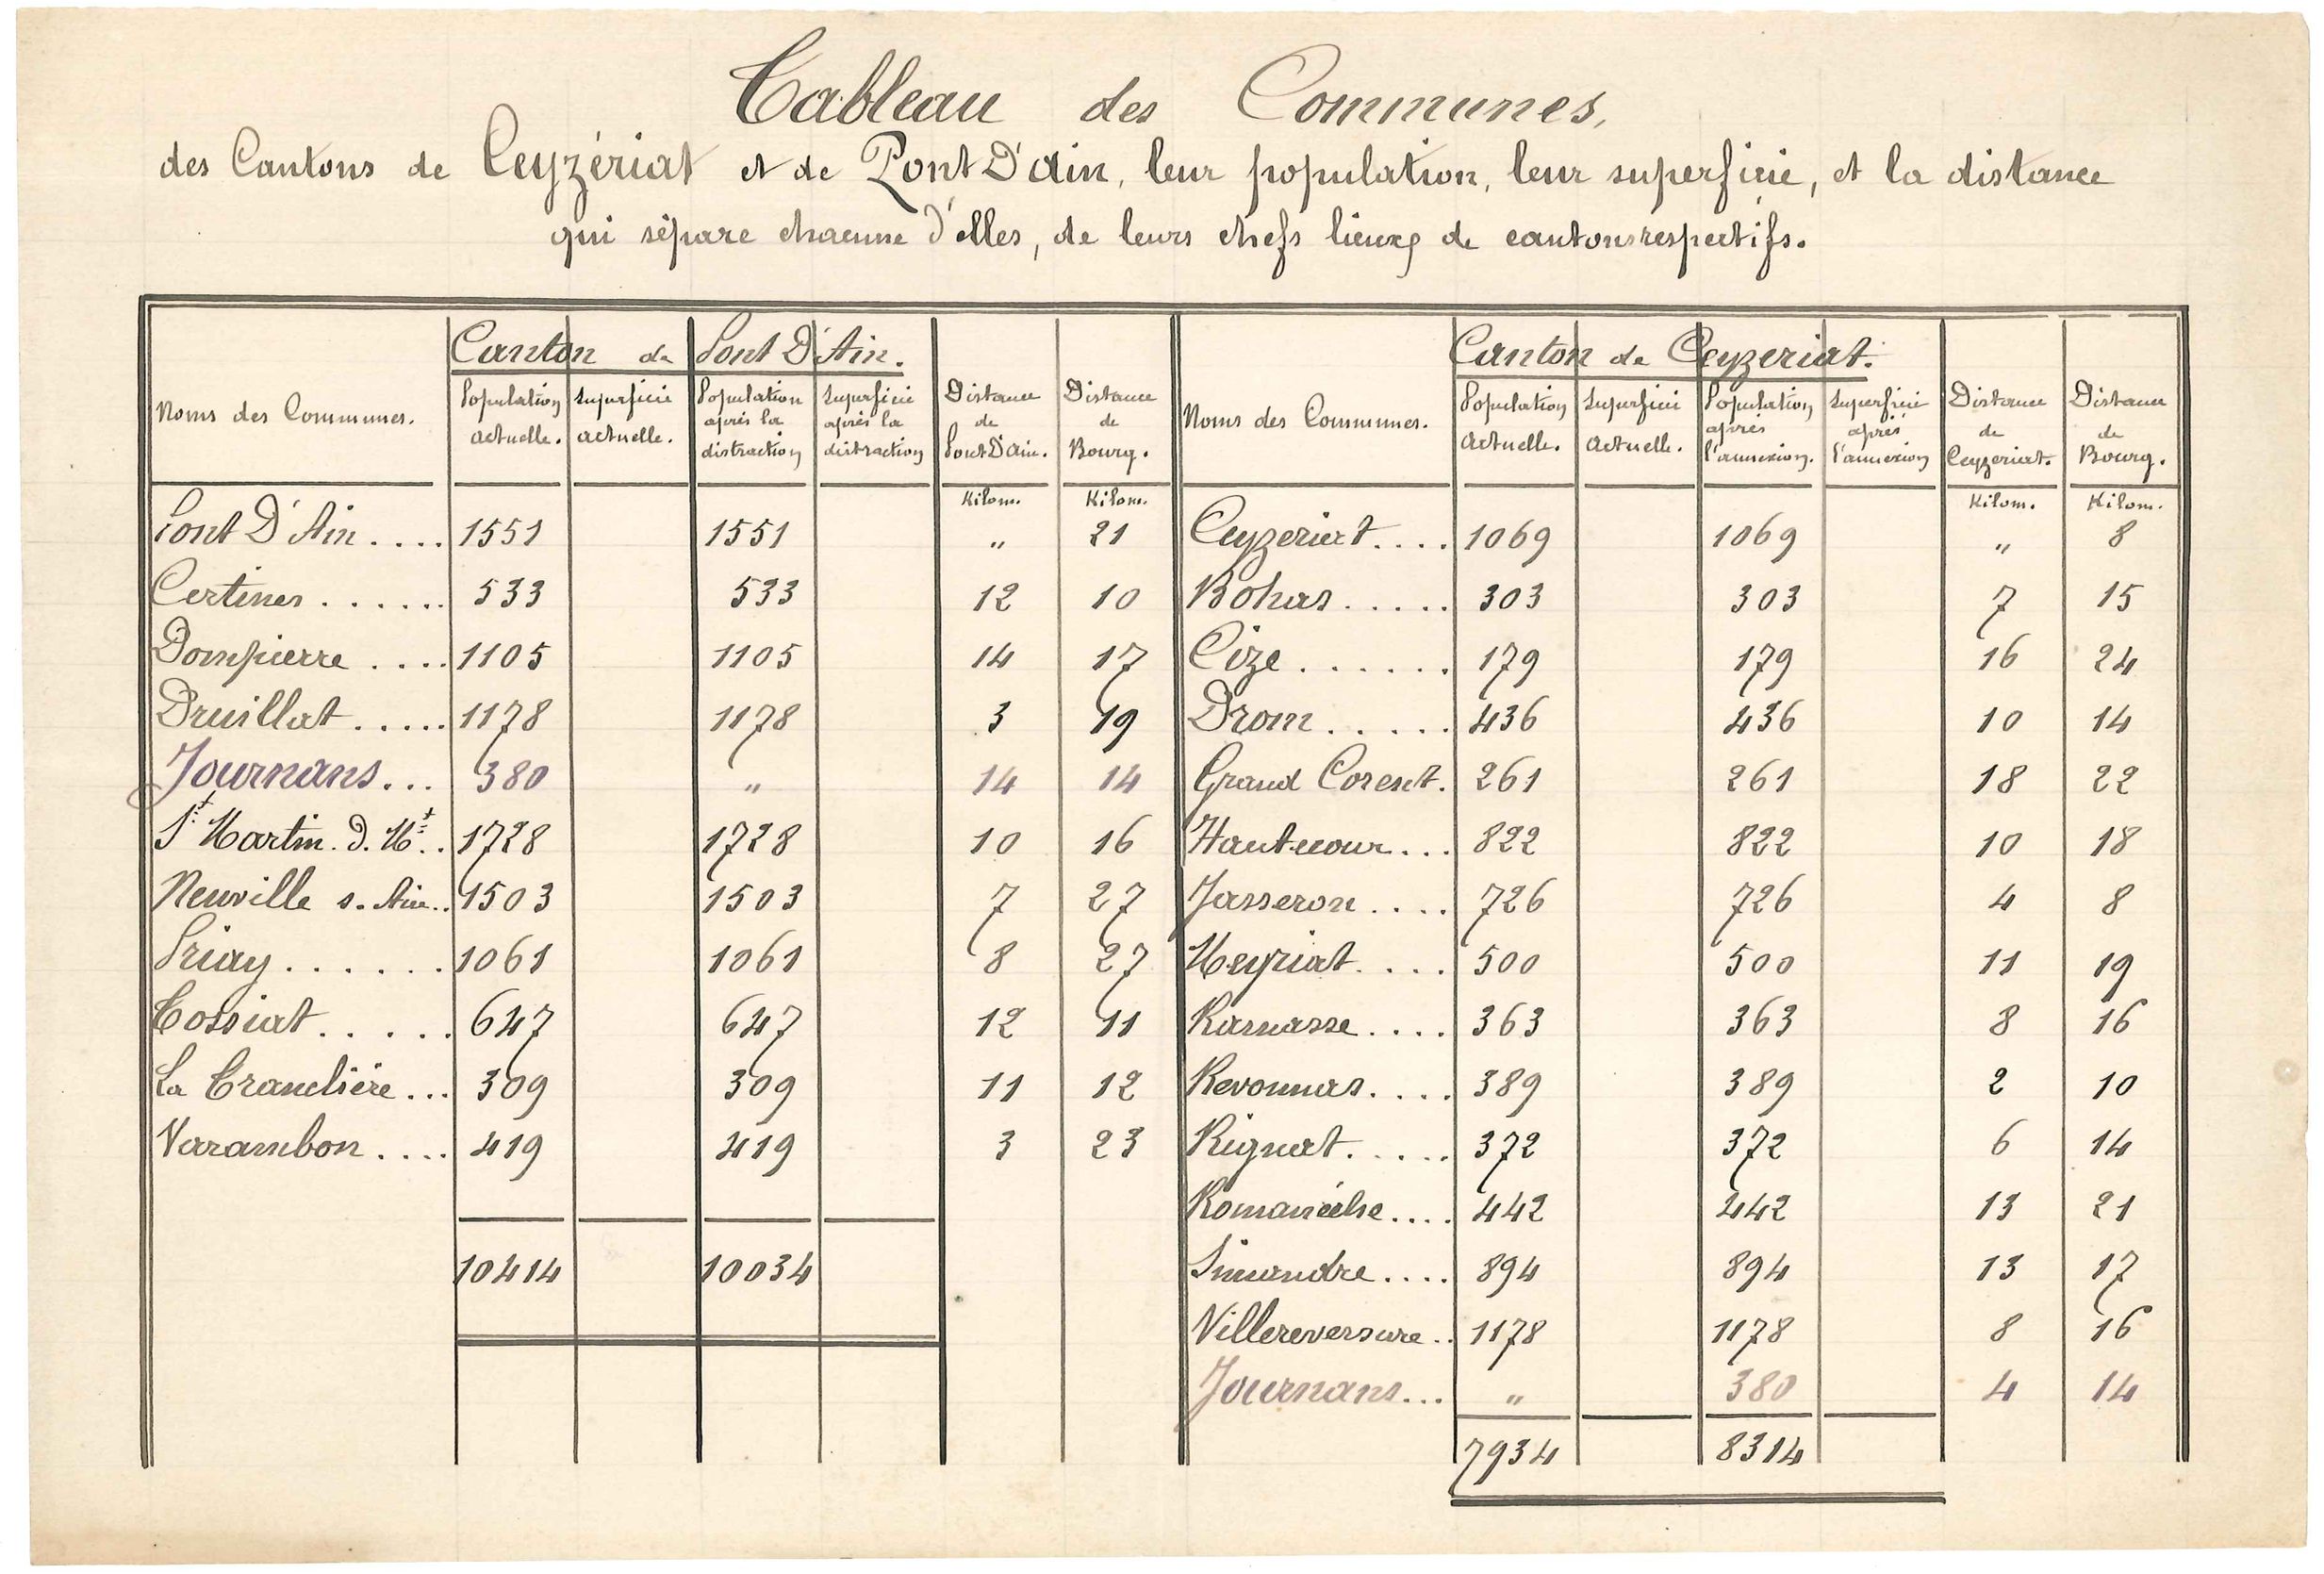 Tableau des Communes,
des Cantons de Ceyzériat et de Pont D'Ain, leur population, leur superficie, et la distance
qui sépare chacune d'elles, de leurs chefs lieux de cantons respectifs.
Canton de Pont D'Ain. Canton de Ceyzeriat.
Noms des Communes. Population actuelle. Superficie actuelle. Population après la distraction Superficie après la distraction Distance de Pont D'Ain. Distance de Bourg. Noms des Communes. Population actuelle. Superficie actuelle. Population après l'annexion. Superficie après l'annexion Distance de Ceyzeriat. Distance de Bourg.
Kilom. Kilom. Kilom. Kilom.
Pont D'Ain .... 1551 1551 " 21 Ceyzeriat .... 1069 1069 " 8
Certines ...... 533 533 12 10 Bohas ..... 303 303 7 15
Dompierre .... 1105 1105 14 17 Cize ...... 179 179 16 24
Druillat ..... 1178 1178 3 19 Drom ..... 436 436 10 14
Journans ... 380 " 14 14 Grand Corent. 261 261 18 22
St Martin. d. Mt .. 1728 1728 10 16 Hautecour ... 822 822 10 18
Neuville s. Ain .. 1503 1503 7 27 Jasseron .... 726 726 4 8
Priay ...... 1061 1061 8 27 Meyriat .... 500 500 11 19
Tossiat ..... 647 647 12 11 Ramasse .... 363 363 8 16
La Tranclière ... 309 309 11 12 Revonnas .... 389 389 2 10
Varambon .... 419 419 3 23 Rignat ..... 372 372 6 14
Romanèche .... 442 442 13 21
10414 10034 Simandre .... 894 894 13 17
Villereversure .. 1178 1178 8 16
Journans ... " 380 4 14
7934 8314